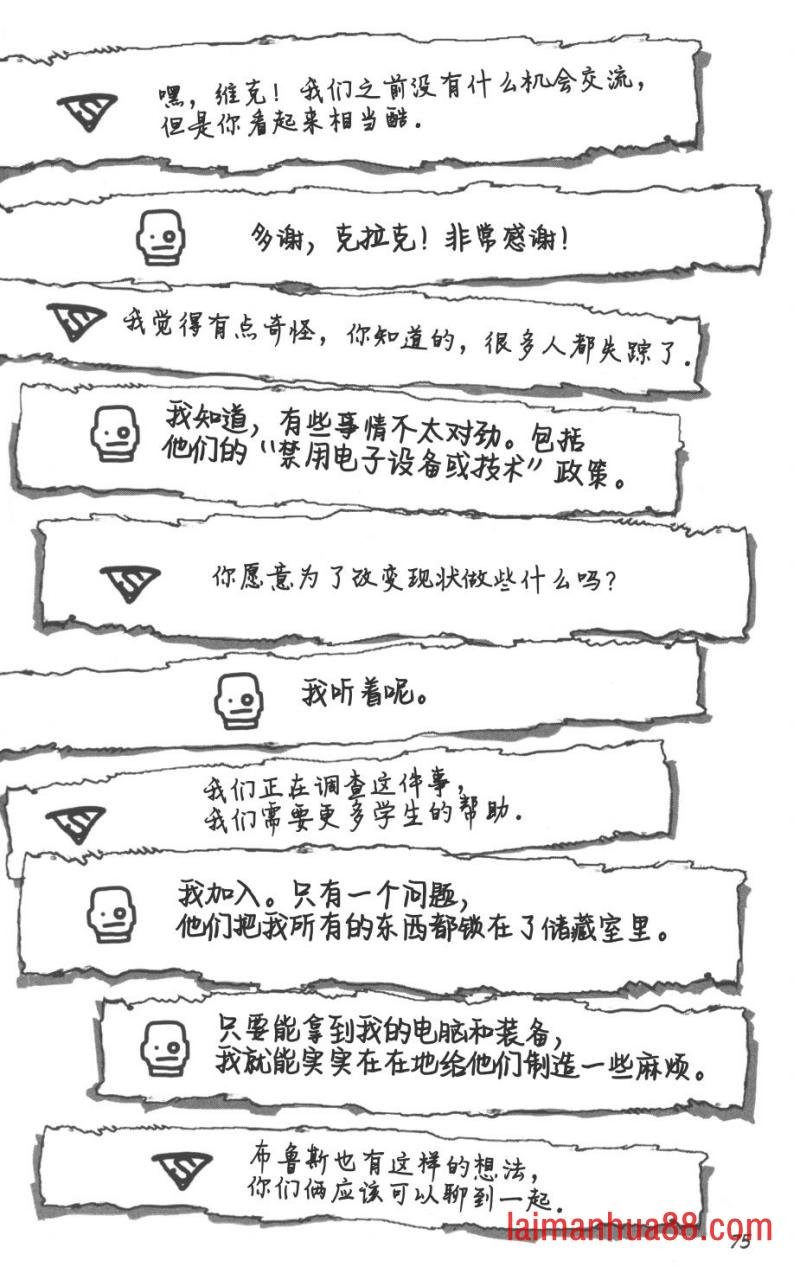 嘿，维克！我们之前没有什么机会交流，
但是你看起来相当酷.
多谢，克拉克！非常感谢！
我觉得有点奇怪，你知道的，很多人都失踪了.
我知道，有些事情不太对劲。包括
他们的“禁用电子设备或技术”政策。
你愿意为了改变现状做些什么吗？
我听着呢。
我们正在调查这件事，
我们需要更多学生的帮助.
我加入。只有一个问题，
他们把我所有的东西都锁在了储藏室里。
只要能拿到我的电脑和装备，
我就能实实在在地给他们制造一些麻烦。
布鲁斯也有这样的想法，
你们俩应该可以聊到一起.
laimanhua88.com
75